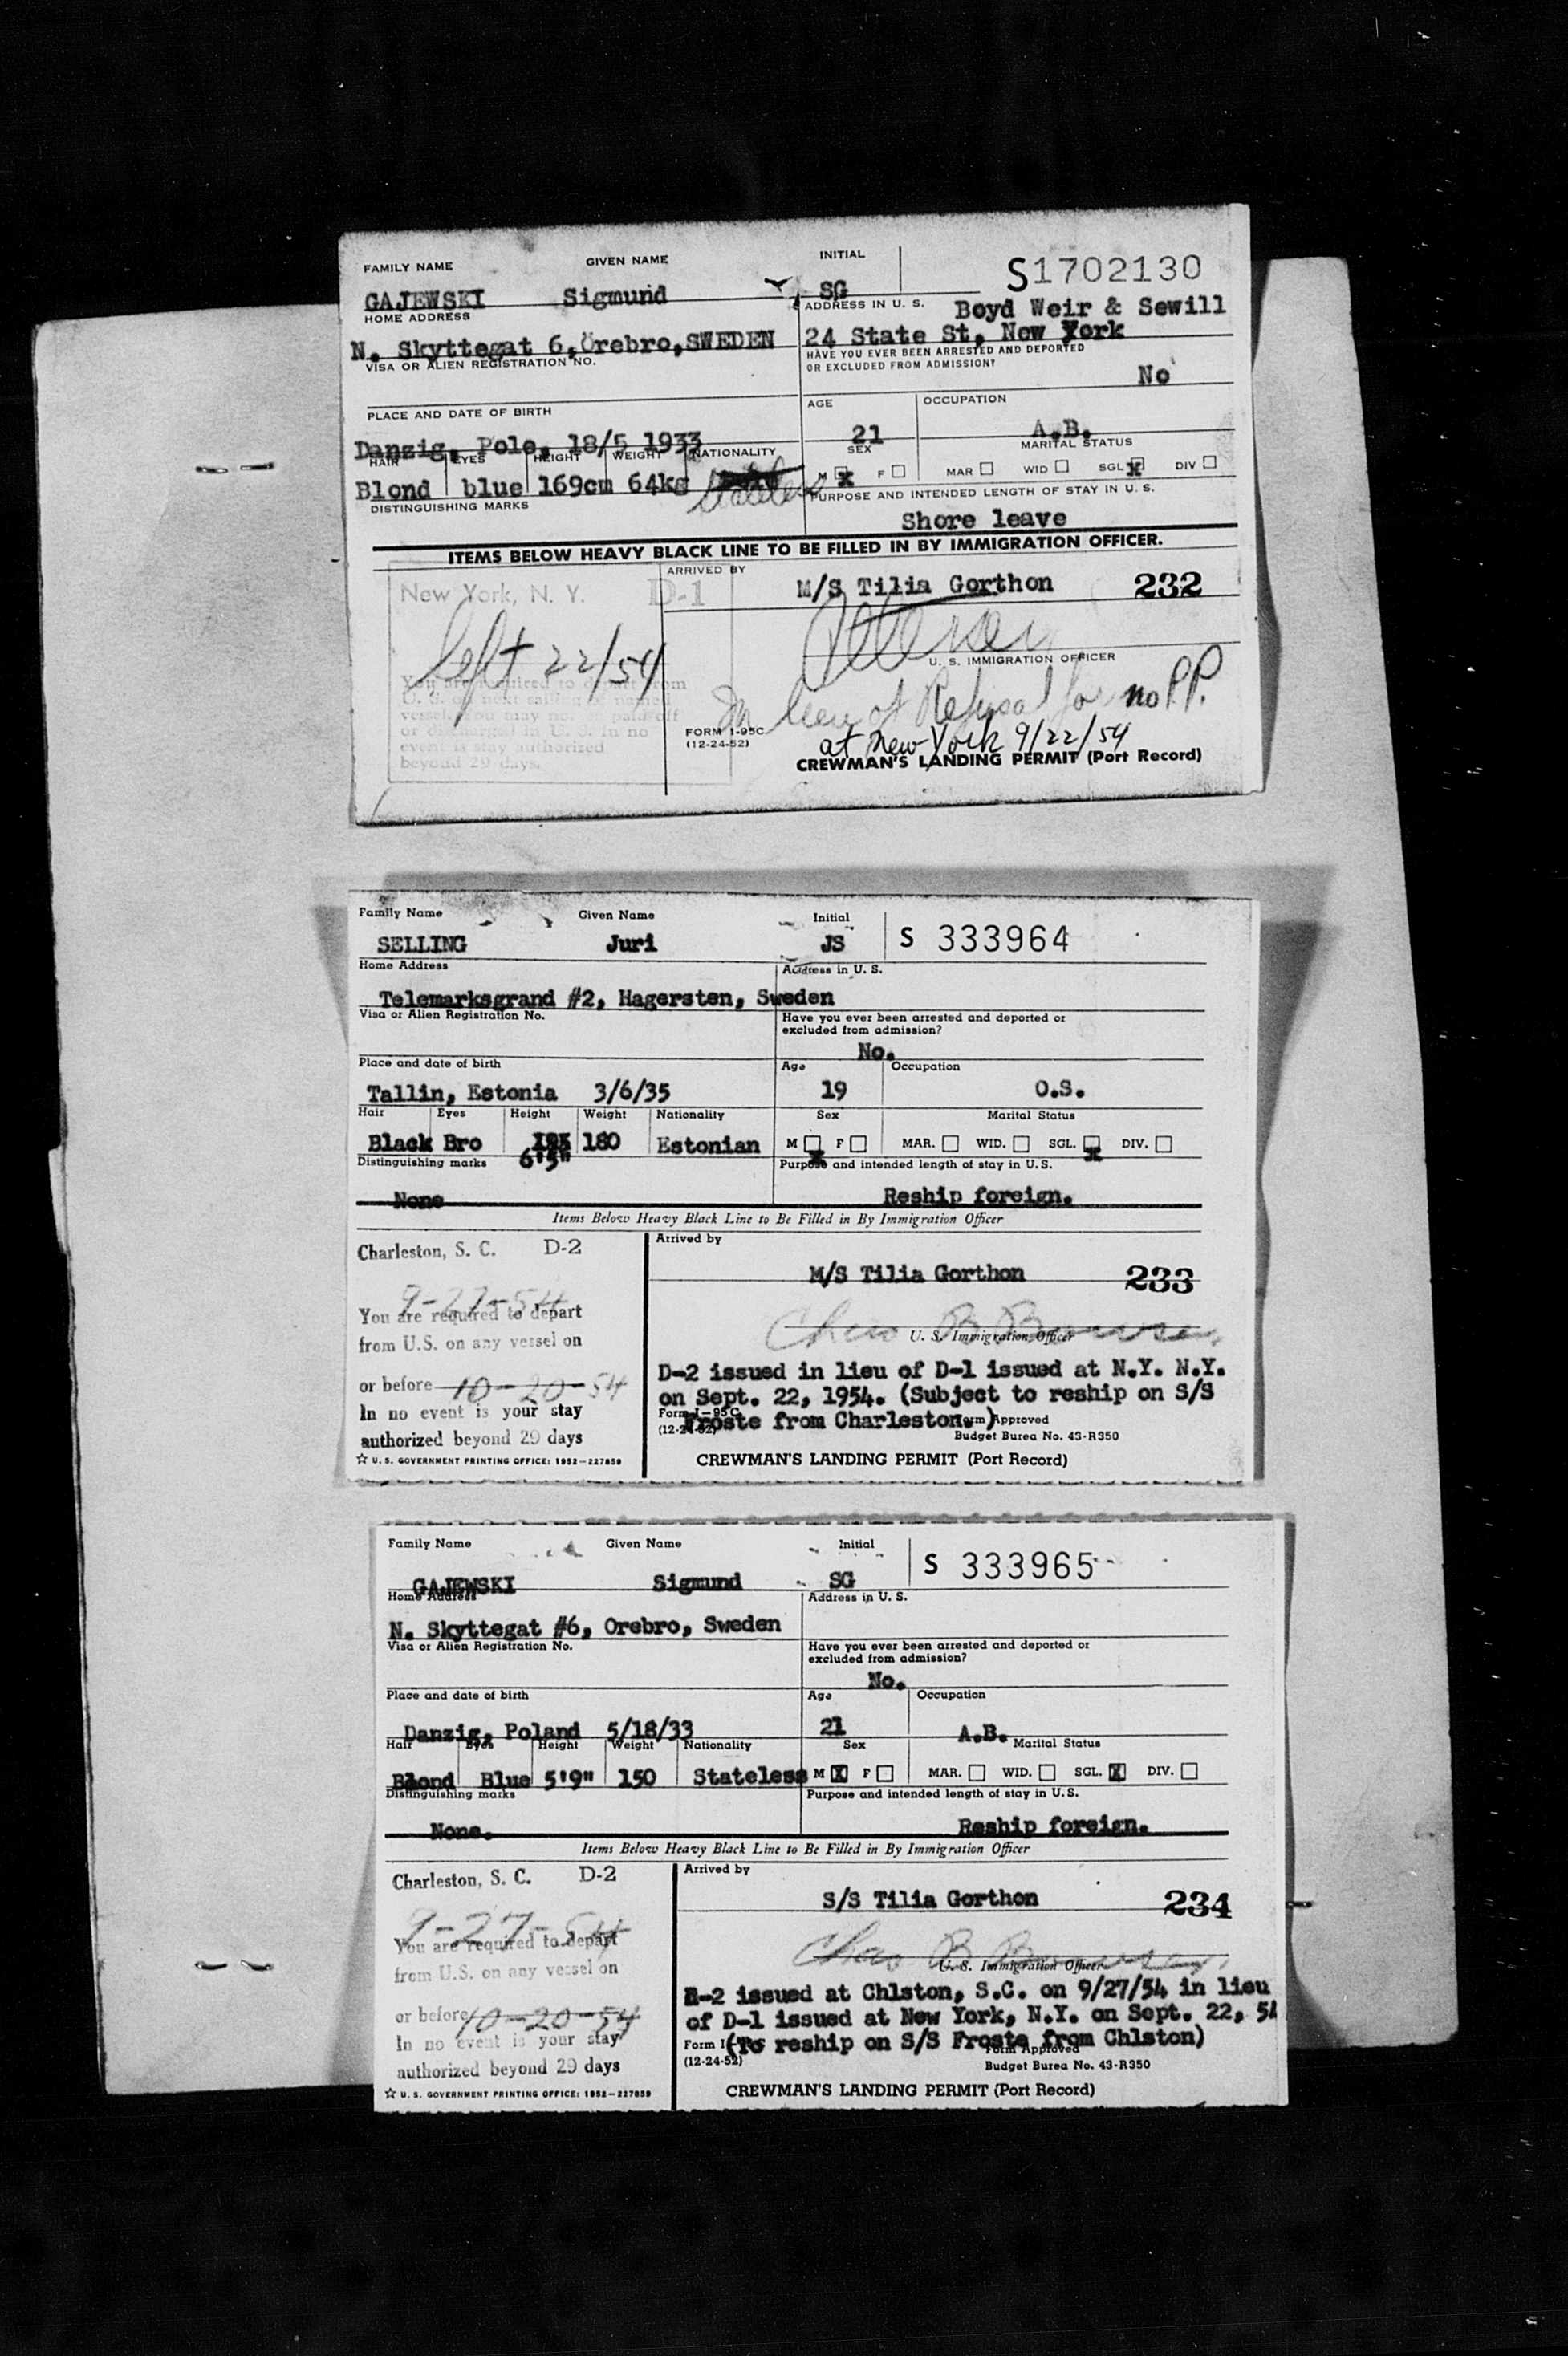 FAMILY NAME GIVEN NAME INITIAL S1702130
GAJEWSKI Sigmund SG
HOME ADDRESS ADDRESS IN U. S. Boyd Weir & Sewill
N. Skyttegat 6,Örebro,SWEDEN 24 State St, New York
VISA OR ALIEN REGISTRATION NO. HAVE YOU EVER BEEN ARRESTED AND DEPORTED
OR EXCLUDED FROM ADMISSION?
No
PLACE AND DATE OF BIRTH AGE OCCUPATION
Danzig, Pole, 18/5 1933 21 A.B.
HAIR EYES HEIGHT WEIGHT NATIONALITY SEX MARITAL STATUS
Blond blue 169cm 64kg Stateless M X F MAR WID SGL X DIV
DISTINGUISHING MARKS PURPOSE AND INTENDED LENGTH OF STAY IN U. S.
Shore leave
ITEMS BELOW HEAVY BLACK LINE TO BE FILLED IN BY IMMIGRATION OFFICER.
New York, N. Y. D-1 ARRIVED BY
M/S Tilia Gorthon 232
left 22/54
U. S. IMMIGRATION OFFICER
You are required to depart from
U. S. on next sailing of named
vessel. You may not be paid off
or discharged in U. S. In no
event is stay authorized
beyond 29 days.
In lieu of Refusal for no P.P.
at New York 9/22/54
FORM I-95C
(12-24-52)
CREWMAN'S LANDING PERMIT (Port Record)
Family Name Given Name Initial S 333964
SELLING Juri JS
Home Address Address in U. S.
Telemarksgrand #2, Hagersten, Sweden
Visa or Alien Registration No. Have you ever been arrested and deported or
excluded from admission?
No.
Place and date of birth Age Occupation
Tallin, Estonia 3/6/35 19 O.S.
Hair Eyes Height Weight Nationality Sex Marital Status
Black Bro 6'3" 180 Estonian M X F MAR. WID. SGL. X DIV.
Distinguishing marks Purpose and intended length of stay in U. S.
None Reship foreign.
Items Below Heavy Black Line to Be Filled in By Immigration Officer
Charleston, S. C. D-2 Arrived by
M/S Tilia Gorthon 233
9-27-54
You are required to depart
from U.S. on any vessel on
or before 10-20-54
In no event is your stay
authorized beyond 29 days
☆ U. S. GOVERNMENT PRINTING OFFICE: 1952—227859
Chas B
U. S. Immigration Officer
D-2 issued in lieu of D-1 issued at N.Y. N.Y.
on Sept. 22, 1954. (Subject to reship on S/S
Froste from Charleston.)
Form I—95C
(12-24-52)
Form Approved
Budget Burea No. 43-R350
CREWMAN'S LANDING PERMIT (Port Record)
Family Name Given Name Initial S 333965
GAJEWSKI Sigmund SG
Home Address Address in U. S.
N. Skyttegat #6, Orebro, Sweden
Visa or Alien Registration No. Have you ever been arrested and deported or
excluded from admission?
No.
Place and date of birth Age Occupation
Danzig, Poland 5/18/33 21 A.B.
Hair Eyes Height Weight Nationality Sex Marital Status
Blond Blue 5'9" 150 Stateless M X F MAR. WID. SGL. X DIV.
Distinguishing marks Purpose and intended length of stay in U. S.
None. Reship foreign.
Items Below Heavy Black Line to Be Filled in By Immigration Officer
Charleston, S. C. D-2 Arrived by
S/S Tilia Gorthon 234
9-27-54
You are required to depart
from U.S. on any vessel on
or before 10-20-54
In no event is your stay
authorized beyond 29 days
☆ U. S. GOVERNMENT PRINTING OFFICE: 1952—227859
Chas B
U. S. Immigration Officer
D-2 issued at Chlston, S.C. on 9/27/54 in lieu
of D-1 issued at New York, N.Y. on Sept. 22, 54
(To reship on S/S Froste from Chlston)
(12-24-52)
Form Approved
Budget Burea No. 43-R350
CREWMAN'S LANDING PERMIT (Port Record)